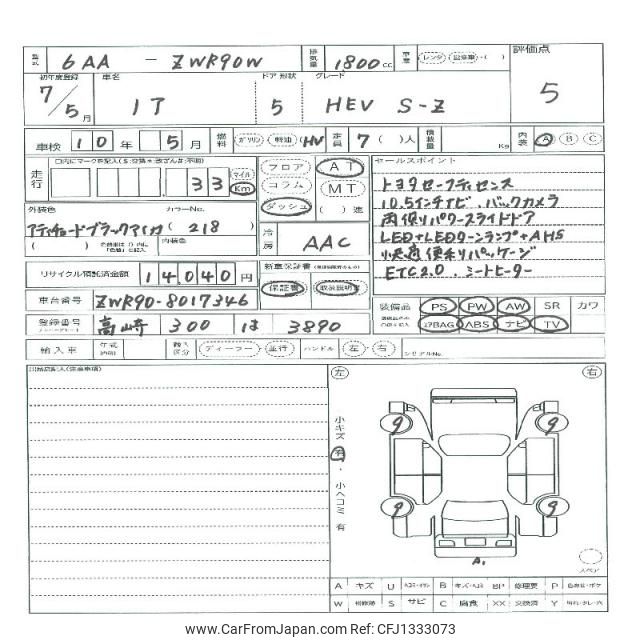 型式 6AA - ZWR90W 排気量 1800 cc 車歴 レンタ ( )
評価点 5
初年度登録 7/5月 車名 ドア 形状 5 グレード HEV S-Z
車検 10年 5月 燃料 ガソリン 軽油 HV 定員 7( )人 積載量 Kg 内装 A B C
走行 33 マイル Km
フロア コラム ダッシュ AT MT ( )速
セールスポイント
トヨタセーフティセンス
10.5インチナビ、バックカメラ
両側パワースライドドア
LED+LEDターンランプ+AHS
快適便利パッケージ
ETC2.0、シートヒーター
外装色 カラーNo.
アティチュードブラックマイカ ( 218 )
( ) 内装色
冷房 AAC
リサイクル預託済金額 14040円
新車保証書 保証書 取扱説明書
車台番号 ZWR90-8017346
装備品 PS PW AW SR カワ
エアBAG ABS ナビ TV
登録番号 高崎 300 は 3890
輸入車 年式 輸入区分 ディーラー・並行 ハンドル 左・右 シリアルNo.
左 右
小キズ 有・小ヘコミ 有
9 9
9 9
A1
スペア
A キズ U B キズ・ヘコミ BP 修理要 P 色あせ・ボケ
W 補修跡 S サビ C 腐食 XX 交換済 Y
www.CarFromJapan.com - CFJ1333073